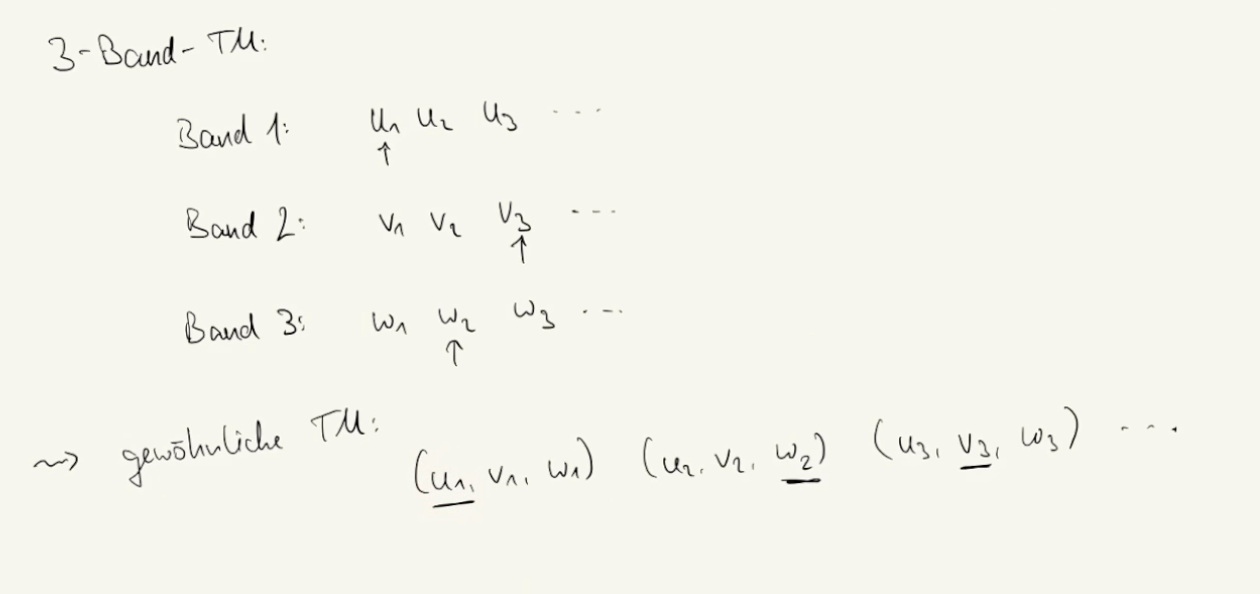 3-Band-TM:
Band 1: u₁ u₂ u₃ ...
↑
Band 2: v₁ v₂ v₃ ...
↑
Band 3: w₁ w₂ w₃ ...
↑
⇝ gewöhnliche TM: (u₁, v₁, w₁) (u₂, v₂, w₂) (u₃, v₃, w₃) ....